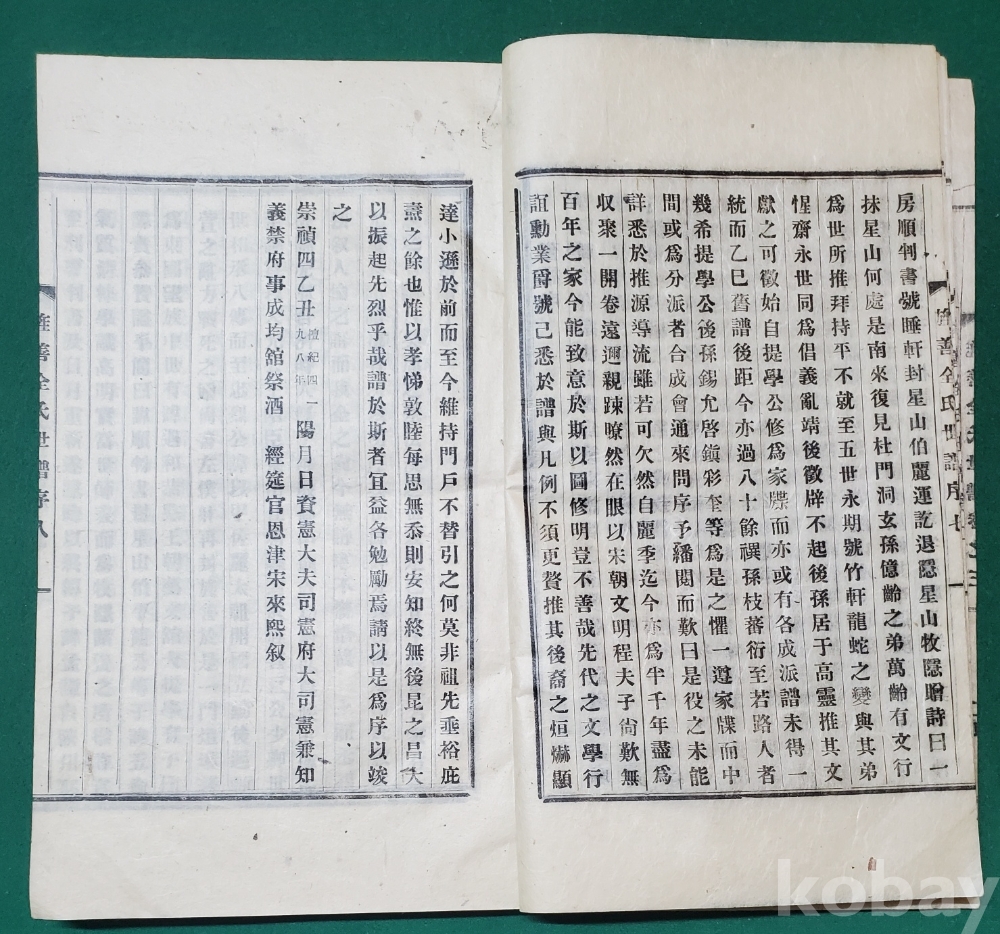 房順判書號睡軒封星山伯麗運訖退隱星山牧隱贈詩曰一
抹星山何處是南來復見杜門洞玄孫億齡之弟萬齡有文行
爲世所推拜持平不就至五世永期號竹軒龍蛇之變與其弟
惺齋永世同爲倡義亂靖後徵辟不起後孫居于高靈推其文
獻之可徵始自提學公修爲家牒而亦或有各成派譜未得一
統而乙巳舊譜後距今亦過八十餘禩孫枝蕃衍至若路人者
幾希提學公後孫錫允啓鎭彩奎等爲是之懼一遵家牒而中
間或爲分派者合成會通來問序予繙閱而歎曰是役之未能
詳悉於推源導流雖若可欠然自麗季迄今亦爲半千年盡爲
收聚一開卷遠邇親踈暸然在眼以宋朝文明程夫子尙歎無
百年之家今能致意於斯以圖修明豈不善哉先代之文學行
誼勳業爵號已悉於譜與凡例不須更贅推其後裔之烜爀顯
旌善全氏世譜序 七
達小遜於前而至今維持門戶不替引之何莫非祖先垂裕庇
燾之餘也惟以孝悌敦睦每思無忝則安知終無後昆之昌大
以振起先烈乎哉譜於斯者宜益各勉勵焉請以是爲序以竢
之
崇禎四乙丑檀紀四二九八年陽月日資憲大夫司憲府大司憲兼知
義禁府事成均館祭酒 經筵官恩津宋來熙叙
旌善全氏世譜序 八
kobay